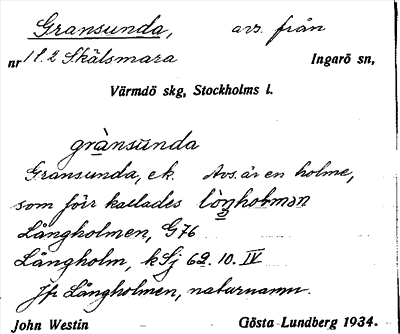 Gransunda, avs. från
nr 1 l. 2 Skälsmara Ingarö sn,
Värmdö skg, Stockholms l.
grànsùnda
Gransunda, ek. Avs. är en holme,
som förr kallades lòŋholmən
Långholmen, G76
Långholm, kSj 69. 10. IV
Jfr Långholmen, naturnamn.
John Westin Gösta Lundberg 1934.